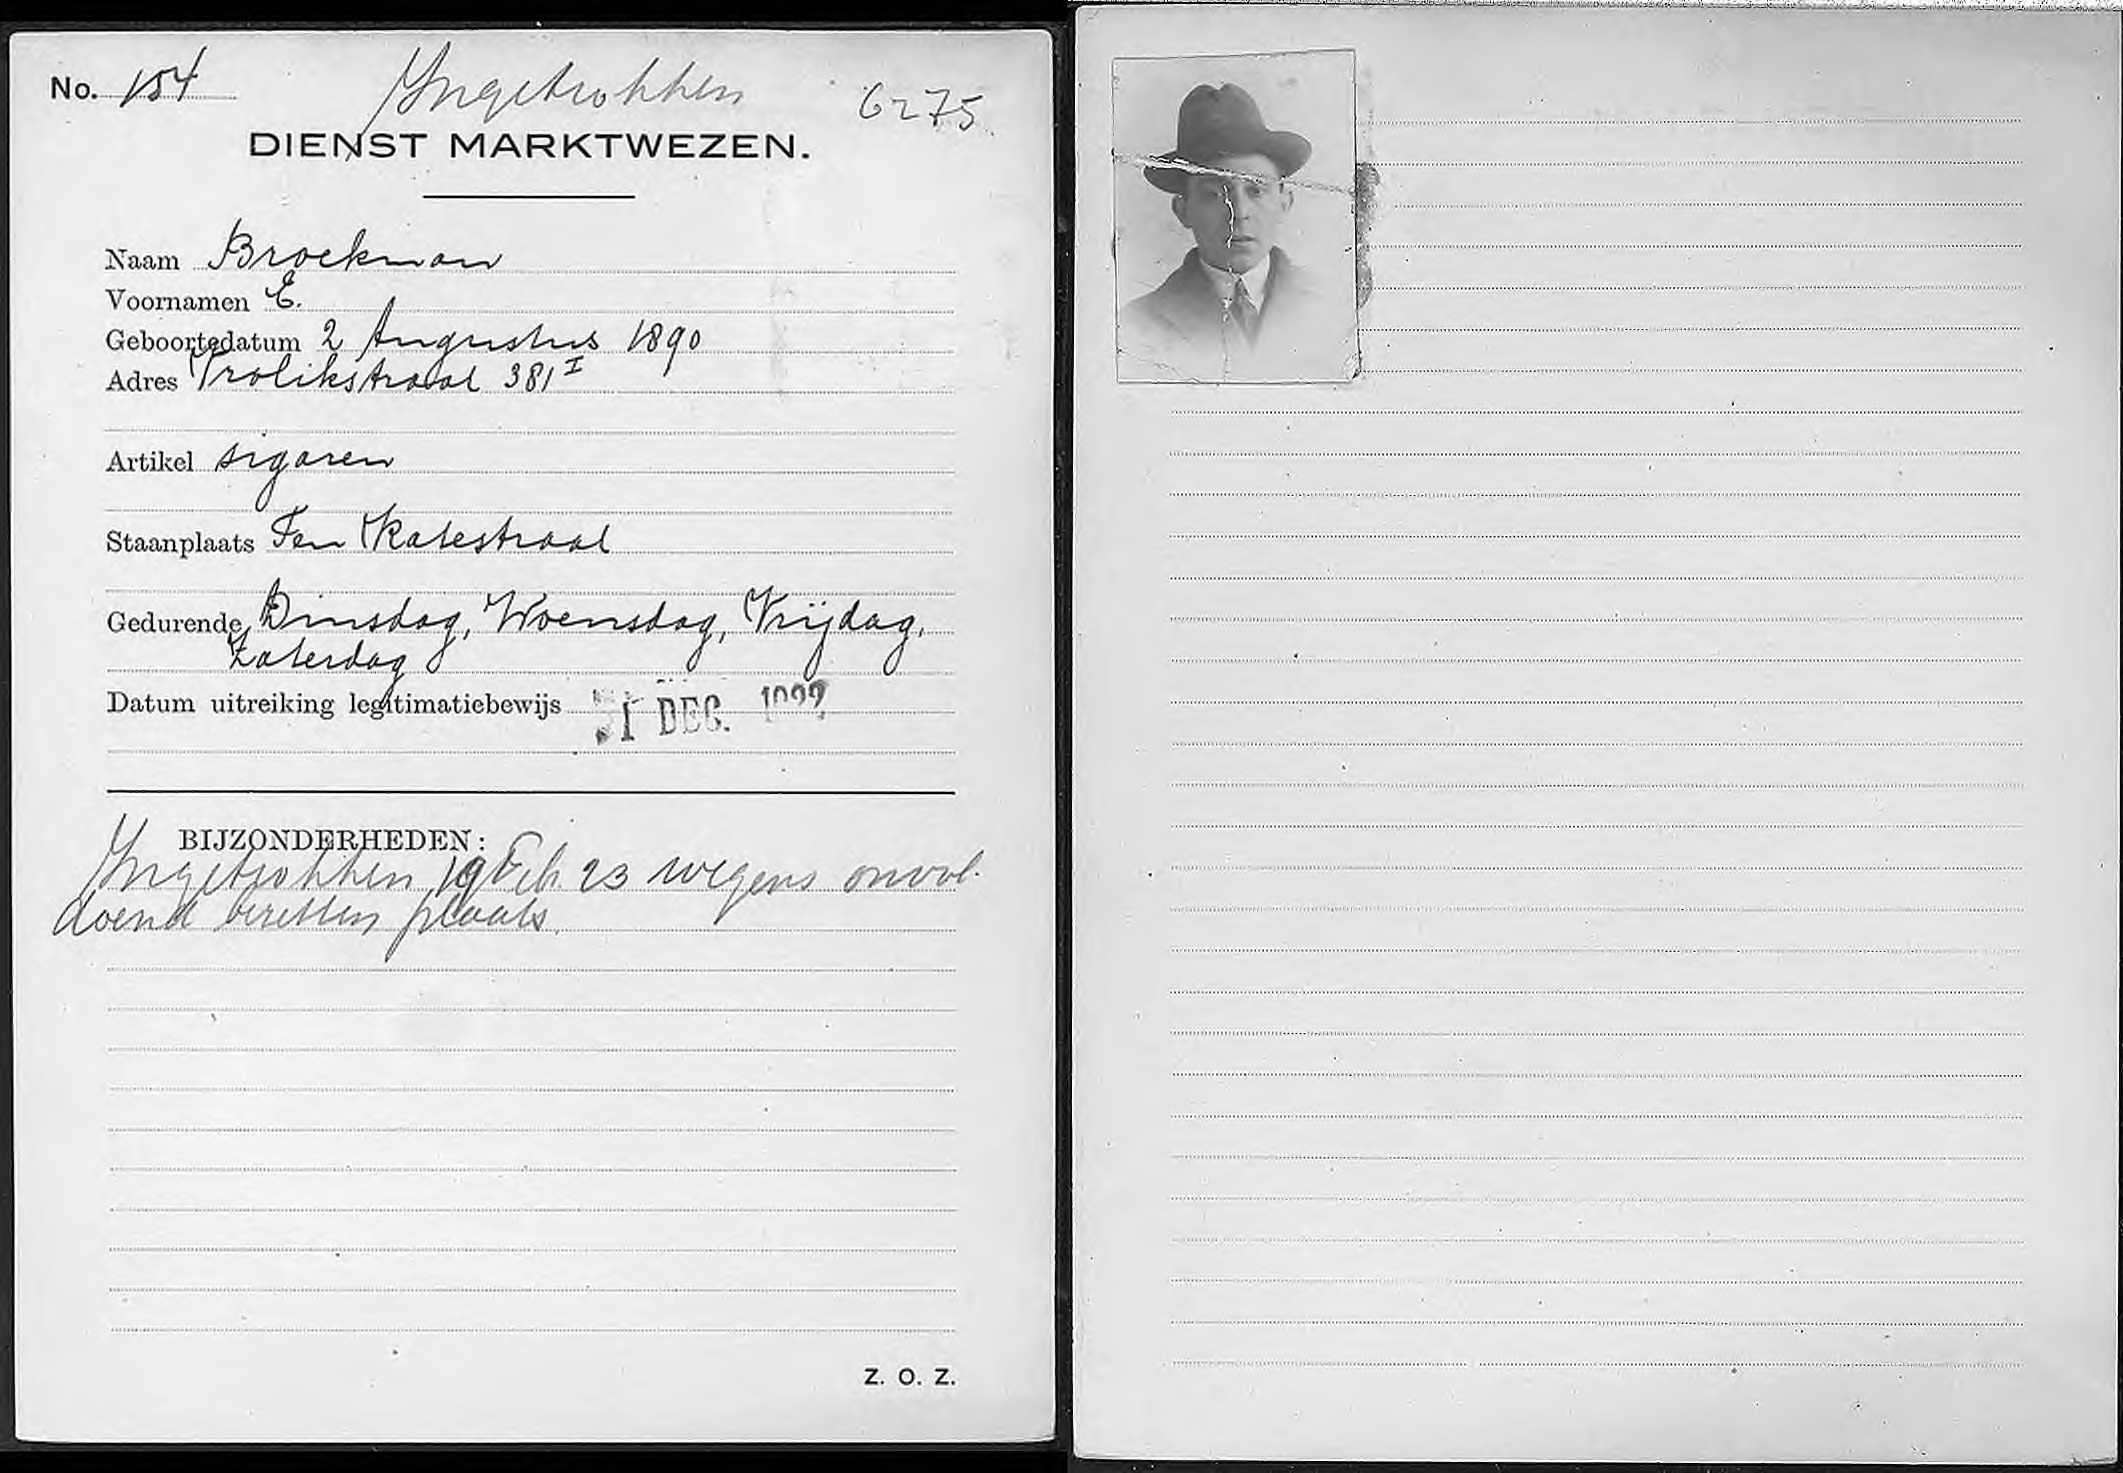 No. 154
Yngetrokken
6275
DIENST MARKTWEZEN.
Naam Broekman
Voornamen E.
Geboortedatum 2 Augustus 1890
Adres Vrolikstraat 381 I
Artikel sigaren
Staanplaats Ten Katestraat
Gedurende Dinsdag, Woensdag, Vrijdag,
Zaterdag
Datum uitreiking legitimatiebewijs DEC.
BIJZONDERHEDEN:
Yngetrokken 19 Feb. 23 wegens onvol-
doend bezetten plaats.
Z. O. Z.